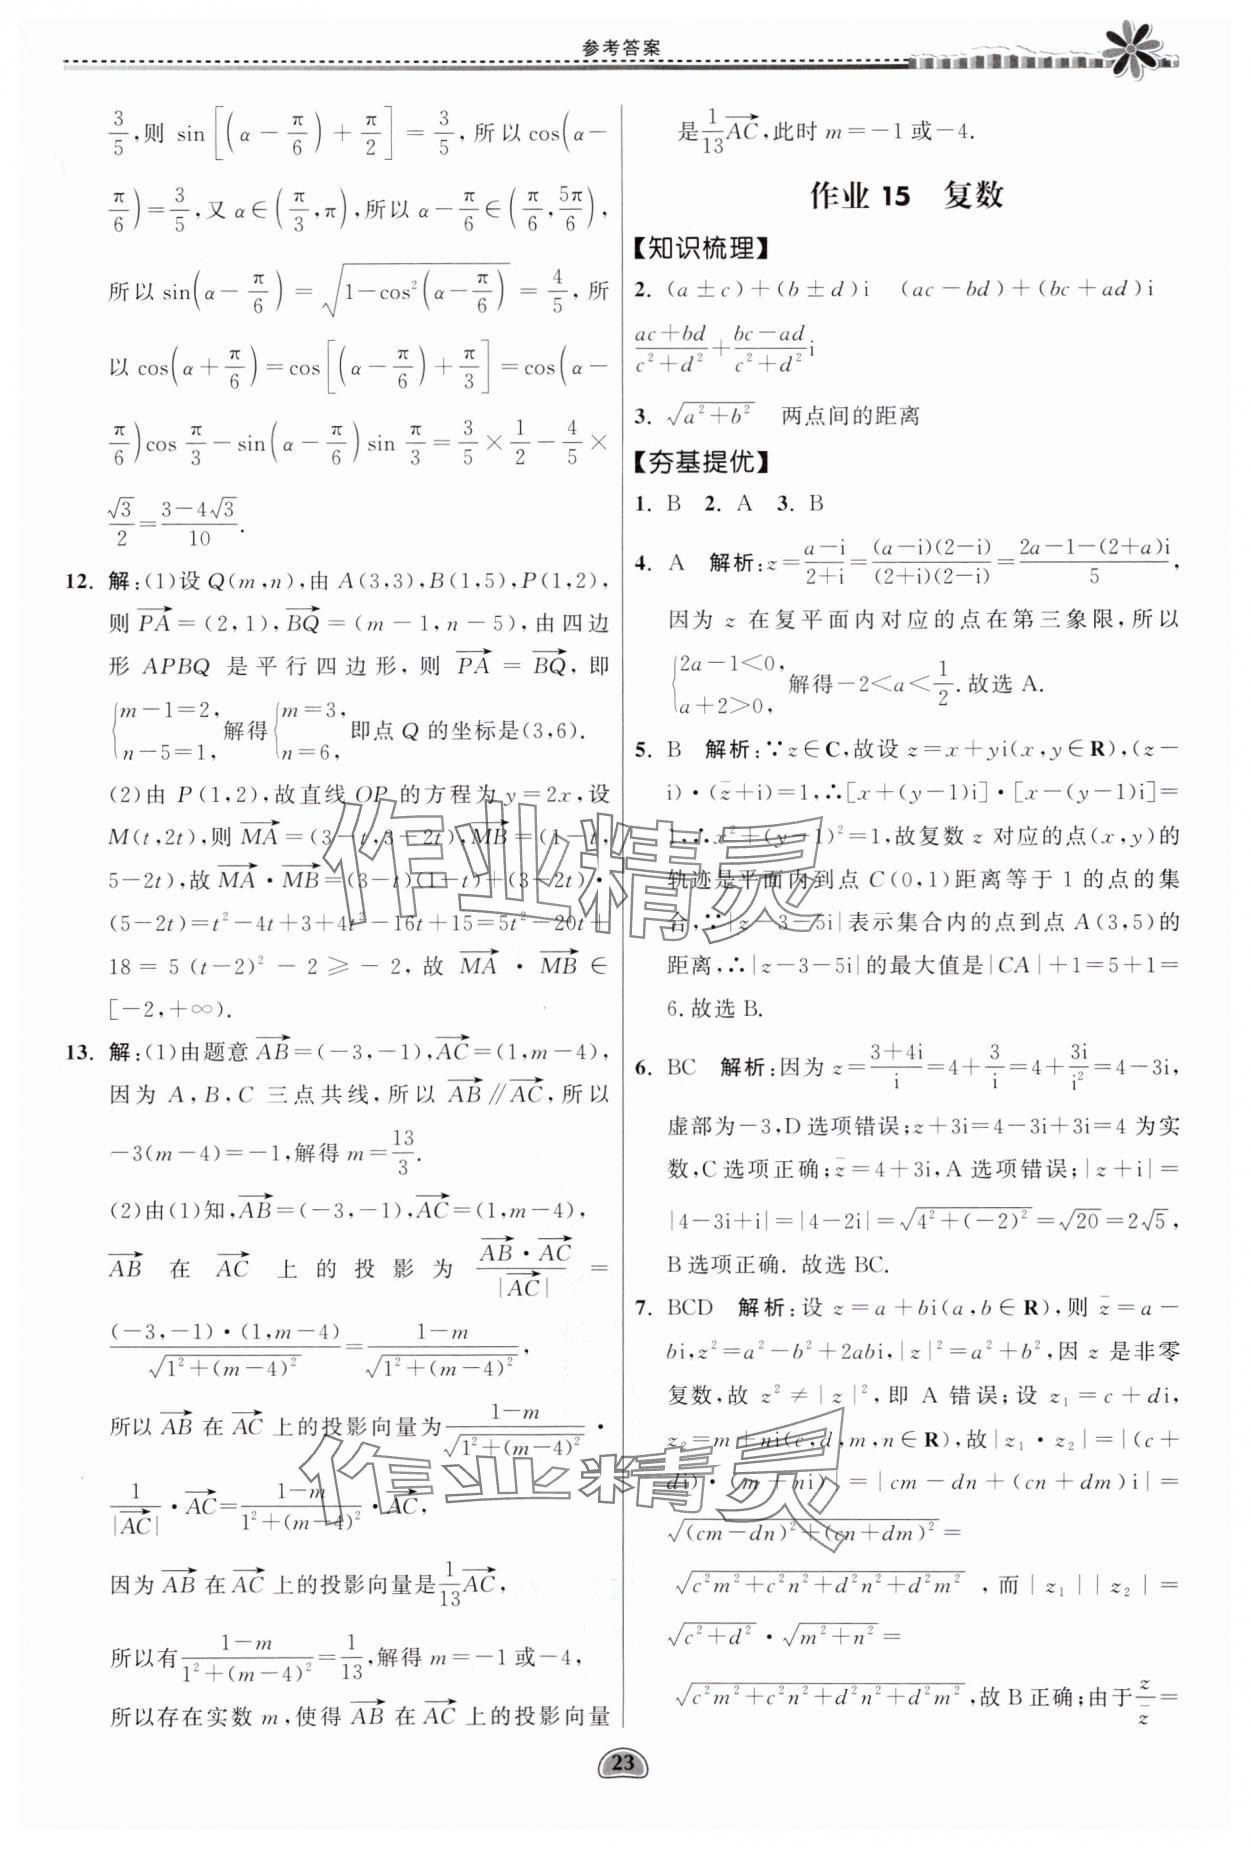 参考答案
3/5,则 sin[(α－π/6)＋π/2]＝3/5,所以cos(α－
π/6)＝3/5,又α∈(π/3,π),所以α－π/6∈(π/6,5π/6),
所以sin(α－π/6)＝√(1－cos²(α－π/6))＝4/5,所
以cos(α＋π/6)＝cos[(α－π/6)＋π/3]＝cos(α－
π/6)cos π/3－sin(α－π/6)sin π/3＝3/5×1/2－4/5×
√3/2＝(3－4√3)/10.
12. 解:(1)设Q(m,n),由A(3,3),B(1,5),P(1,2),
则PA→＝(2,1),BQ→＝(m－1,n－5),由四边
形APBQ是平行四边形,则PA→＝BQ→,即
{m－1＝2, n－5＝1, 解得{m＝3, n＝6, 即点Q的坐标是(3,6).
(2)由P(1,2),故直线OP的方程为y＝2x,设
M(t,2t),则MA→＝(3－t,3－2t),MB→＝(1－t,
5－2t),故MA→·MB→＝(3－t)(1－t)＋(3－2t)·
(5－2t)＝t²－4t＋3＋4t²－16t＋15＝5t²－20t＋
18＝5(t－2)²－2≥－2,故MA→·MB→∈
[－2,＋∞).
13. 解:(1)由题意AB→＝(－3,－1),AC→＝(1,m－4),
因为A,B,C三点共线,所以AB→∥AC→,所以
－3(m－4)＝－1,解得m＝13/3.
(2)由(1)知,AB→＝(－3,－1),AC→＝(1,m－4),
AB→在AC→上的投影为(AB→·AC→)/|AC→|＝
(－3,－1)·(1,m－4)/√(1²＋(m－4)²)＝(1－m)/√(1²＋(m－4)²),
所以AB→在AC→上的投影向量为(1－m)/√(1²＋(m－4)²)·
1/|AC→|·AC→＝(1－m)/(1²＋(m－4)²)·AC→,
因为AB→在AC→上的投影向量是1/13 AC→,
所以有(1－m)/(1²＋(m－4)²)＝1/13,解得m＝－1或－4,
所以存在实数m,使得AB→在AC→上的投影向量
是1/13 AC→,此时m＝－1或－4.
作业15 复数
【知识梳理】
2. (a±c)＋(b±d)i (ac－bd)＋(bc＋ad)i
(ac＋bd)/(c²＋d²)＋(bc－ad)/(c²＋d²)i
3. √(a²＋b²) 两点间的距离
【夯基提优】
1. B 2. A 3. B
4. A 解析:z＝(a－i)/(2＋i)＝(a－i)(2－i)/(2＋i)(2－i)＝(2a－1－(2＋a)i)/5,
因为z在复平面内对应的点在第三象限,所以
{2a－1＜0, a＋2＞0, 解得－2＜a＜1/2.故选A.
5. B 解析:∵z∈C,故设z＝x＋yi(x,y∈R),(z－
i)·(z̄＋i)＝1,∴[x＋(y－1)i]·[x－(y－1)i]＝
1,∴x²＋(y－1)²＝1,故复数z对应的点(x,y)的
轨迹是平面内到点C(0,1)距离等于1的点的集
合,∵|z－3－5i|表示集合内的点到点A(3,5)的
距离,∴|z－3－5i|的最大值是|CA|＋1＝5＋1＝
6.故选B.
6. BC 解析:因为z＝(3＋4i)/i＝4＋3/i＝4＋3i/i²＝4－3i,
虚部为－3,D选项错误;z＋3i＝4－3i＋3i＝4为实
数,C选项正确;z̄＝4＋3i,A选项错误;|z＋i|＝
|4－3i＋i|＝|4－2i|＝√(4²＋(－2)²)＝√20＝2√5,
B选项正确. 故选BC.
7. BCD 解析:设z＝a＋bi(a,b∈R),则z̄＝a－
bi,z²＝a²－b²＋2abi,|z|²＝a²＋b²,因z是非零
复数,故z²≠|z|²,即A错误;设z₁＝c＋di,
z₂＝m＋ni(c,d,m,n∈R),故|z₁·z₂|＝|(c＋
di)·(m＋ni)|＝|cm－dn＋(cn＋dm)i|＝
√((cm－dn)²＋(cn＋dm)²)＝
√(c²m²＋c²n²＋d²n²＋d²m²),而|z₁||z₂|＝
√(c²＋d²)·√(m²＋n²)＝
√(c²m²＋c²n²＋d²n²＋d²m²),故B正确;由于z/z̄＝
23
作业精灵
作业精灵